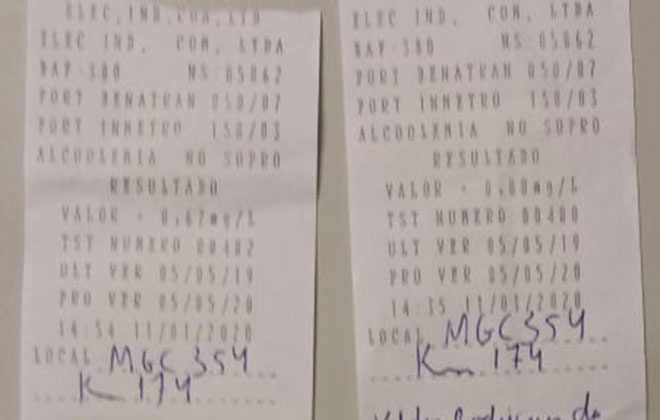 ELEC IND. COM. LTDA
ELEC IND. COM. LTDA
BAF-300 NS:05862
PORT DENATRAN 050/07
PORT INMETRO 158/03
ALCOOLEMIA NO SOPRO
RESULTADO
VALOR = 0.67mg/L
TST NUMERO 00482
ULT VER 05/05/19
PRO VER 05/05/20
14:54 11/01/2020
LOCAL MGC 354
K 174
ELEC IND. COM. LTDA
BAF-300 NS:05862
PORT DENATRAN 050/07
PORT INMETRO 158/03
ALCOOLEMIA NO SOPRO
RESULTADO
VALOR = 0.80mg/L
TST NUMERO 00480
ULT VER 05/05/19
PRO VER 05/05/20
14:35 11/01/2020
LOCAL MGC 354
Km 174